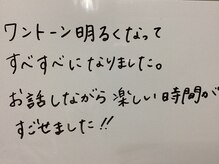 ワントーン明るくなって
すべすべになりました。
お話しながら楽しい時間が
すごせました!!